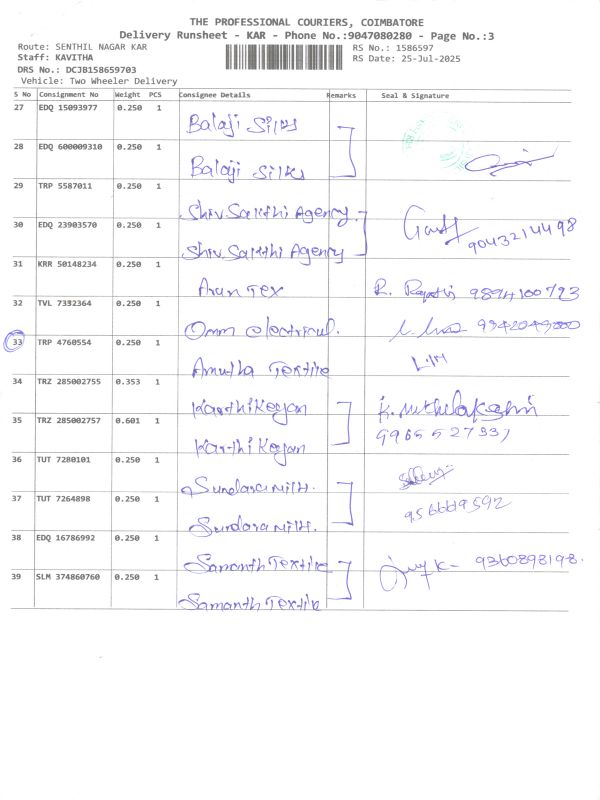 THE PROFESSIONAL COURIERS, COIMBATORE
Delivery Runsheet - KAR - Phone No.:9047080280 - Page No.:3
Route: SENTHIL NAGAR KAR RS No.: 1586597
Staff: KAVITHA RS Date: 25-Jul-2025
DRS No.: DCJB158659703
Vehicle: Two Wheeler Delivery
S No Consignment No Weight PCS Consignee Details Remarks Seal & Signature
27 EDQ 15093977 0.250 1
Balaji Silks
28 EDQ 600009310 0.250 1
Balaji Silks
29 TRP 5587011 0.250 1
Shiv Sakthi Agency
30 EDQ 23903570 0.250 1 9043214498
Shiv Sakthi Agency
31 KRR 50148234 0.250 1
Arun Tex R. 9894100793
32 TVL 7332364 0.250 1
Omm electrical. 9942049000
33 TRP 4760554 0.250 1
Amutha Textile
34 TRZ 285002755 0.353 1
Karthikeyan K. Muthulakshmi
35 TRZ 285002757 0.601 1 9965527337
Karthikeyan
36 TUT 7280101 0.250 1
Sundara Mill.
37 TUT 7264898 0.250 1 9566619592
Sundara Mill.
38 EDQ 16786992 0.250 1
Samanth Textile 9360898198.
39 SLM 374860760 0.250 1
Samanth Textile